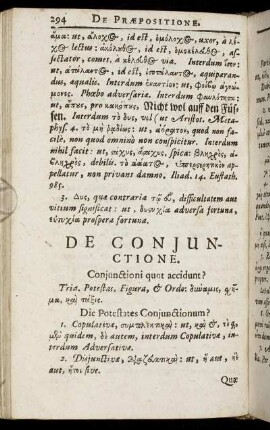 294 DE PRÆPOSITIONE.
ἅμα: ut, ἄλοχος, id est, ὁμόλοχος, uxor, à λέχος
lectus: ἀκόλουθος, id est, ὁμοκέλευθος, as-
sectator, comes, à κέλευθος via. Interdum ἴσον:
ut, ἀτάλαντος, id est, ἰσοτάλαντος, æquiparan-
dus, æqualis. Interdum ἐναντίον: ut,
Phœbo adversaria. Interdum
ut, pro Nicht wol auff den Füs-
sen. Interdum τὸ δυς, vel ut Aristot. Meta-
phys. 4. τὸ μὴ ut, ἀόρατον, quod non faci-
le, non quod omninò non conspicitur. Interdum
nihil facit: ut, spica:
debilis. τὸ ap-
pellatur, non privans damno. Iliad. 14. Eustath.
985.
3. Δυς, quæ contraria τῷ εὖ, difficultatem aut
vitium significat: ut, δυστυχία adversa fortuna,
εὐτυχία prospera fortuna.
DE CONJUN-
CTIONE.
Conjunctioni quot accidunt?
Tria. Potestas, Figura, & Ordo: δύναμις, σχῆ-
μα, καὶ τάξις.
Die Potestates Conjunctionum?
1. Copulativa, συμπλεκτικὴ: ut, καὶ &, τὲ
quidem, δὲ autem, interdum Copulativa, in-
terdum Adversativa.
2. Disjunctiva, διαζευκτικὴ: ut, ἢ aut,
aut, ἤτοι sive.
Quæ